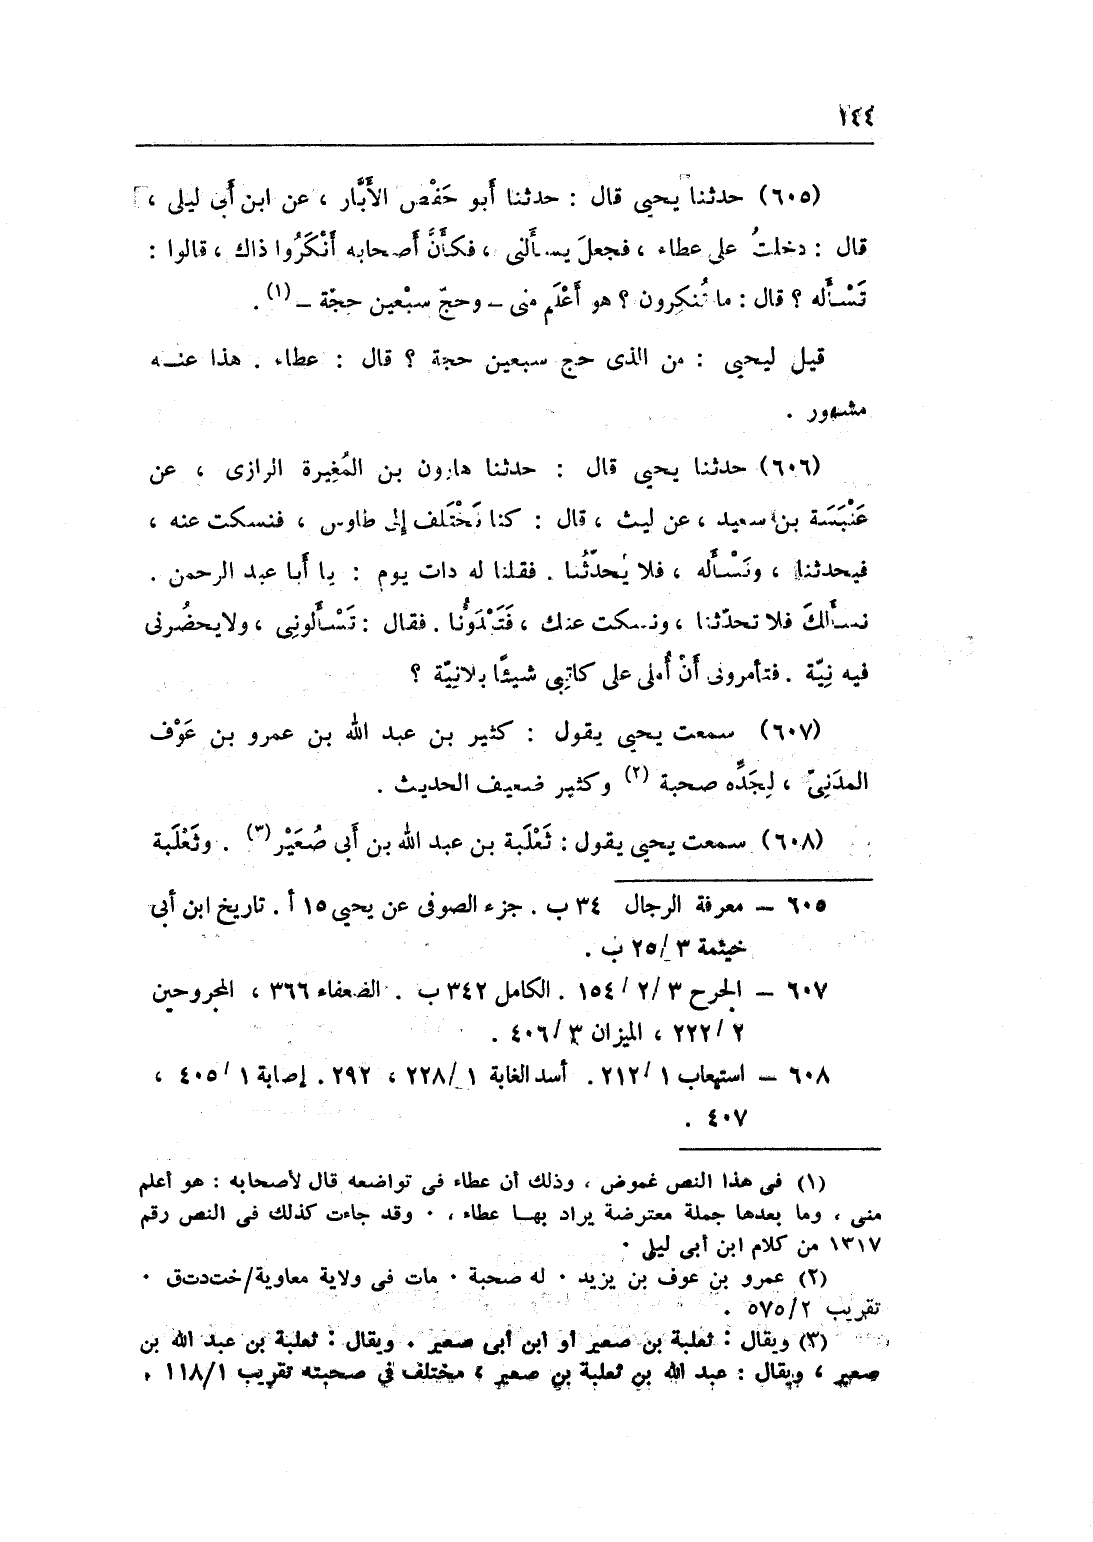 ١٤٤
(٦٠٥) حدثنا يحيى قال : حدثنا أبو حَفْص الأَبَّار ، عن ابن أَبى ليلى ،
قال : دخلتُ على عطاء ، فجعلَ يسألنى ، فكأَنَّ أصحابه أَنْكَرُوا ذاك ، قالوا :
تَسْأَله ؟ قال : ما تُنكِرون ؟ هو أَعْلَم منى – وحجّ سبْعين حجّة – (١) .
قيل ليحيى : من الذى حج سبعين حجة ؟ قال : عطاء . هذا عنه
مشهور .
(٦٠٦) حدثنا يحيى قال : حدثنا هارون بن المُغِيرة الرازى ، عن
عَنْبَسَة بن سعيد ، عن ليث ، قال : كنا نَخْتَلف إلى طاوس ، فنسكت عنه ،
فيحدثنا ، ونَسْأَله ، فلا يُحدّثُنا . فقلنا له ذات يوم : يا أَبا عبد الرحمن .
نسأَلكَ فلا تحدّثنا ، ونسكت عنك ، فَتَبْدَوُّنا . فقال : تَسْأَلونِى ، ولايحضُرنى
فيه نِيّة . فتأمرونى أَنْ أُملى على كاتِبِى شيئًا بلانِيّة ؟
(٦٠٧) سمعت يحيى يقول : كثير بن عبد الله بن عمرو بن عَوْف
المدَنِىّ ، لِجَدِّه صحبة (٢) وكثير ضعيف الحديث .
(٦٠٨) سمعت يحيى يقول : ثَعْلَبة بن عبد الله بن أَبى صُعَيْر (٣) . وثَعْلَبة
٦٠٥ – معرفة الرجال ٣٤ ب . جزء الصوفى عن يحيى ١٥ أ . تاريخ ابن أبى
خيثمة ٣ /٢٥ ب .
٦٠٧ – الجرح ٣ /٢ / ١٥٤ . الكامل ٣٤٢ ب . الضعفاء ٣٦٦ ، المجروحين
٢ /٢٢٢ ، الميزان ٣ /٤٠٦ .
٦٠٨ – استيعاب ١ /٢١٢ . أسد الغابة ١ /٢٢٨ ، ٢٩٢ . إصابة ١ /٤٠٥ ،
٤٠٧ .
(١) فى هذا النص غموض ، وذلك أن عطاء فى تواضعه قال لأصحابه : هو أعلم
منى ، وما بعدها جملة معترضة يراد بها عطاء ، . وقد جاءت كذلك فى النص رقم
١٣١٧ من كلام ابن أبى ليلى .
(٢) عمرو بن عوف بن يزيد . له صحبة . مات فى ولاية معاوية/خت‌دت‌ق .
تقريب ٥٧٥/٢ .
(٣) ويقال : ثعلبة بن صعير أو ابن أبى صعير . ويقال : ثعلبة بن عبد الله بن
صعير ، ويقال : عبد الله بن ثعلبة بن صعير ، مختلف في صحبته تقريب ١١٨/١ .